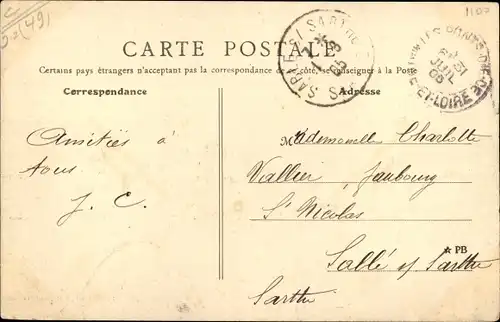 (49)
1107
CARTE POSTALE
Certains pays étrangers n'acceptant pas la correspondance de ce côté, se renseigner à la Poste
Correspondance
Adresse
SABLE S/ SARTHE
LES PONTS-DE-CÉ
31 JUIL 06
NE-ET-LOIRE
Amitiés à
tous
J. C.
Mademoiselle Charlotte
Vallier, Faubourg
St Nicolas
Sablé s/ Sarthe
Sarthe
★ PB